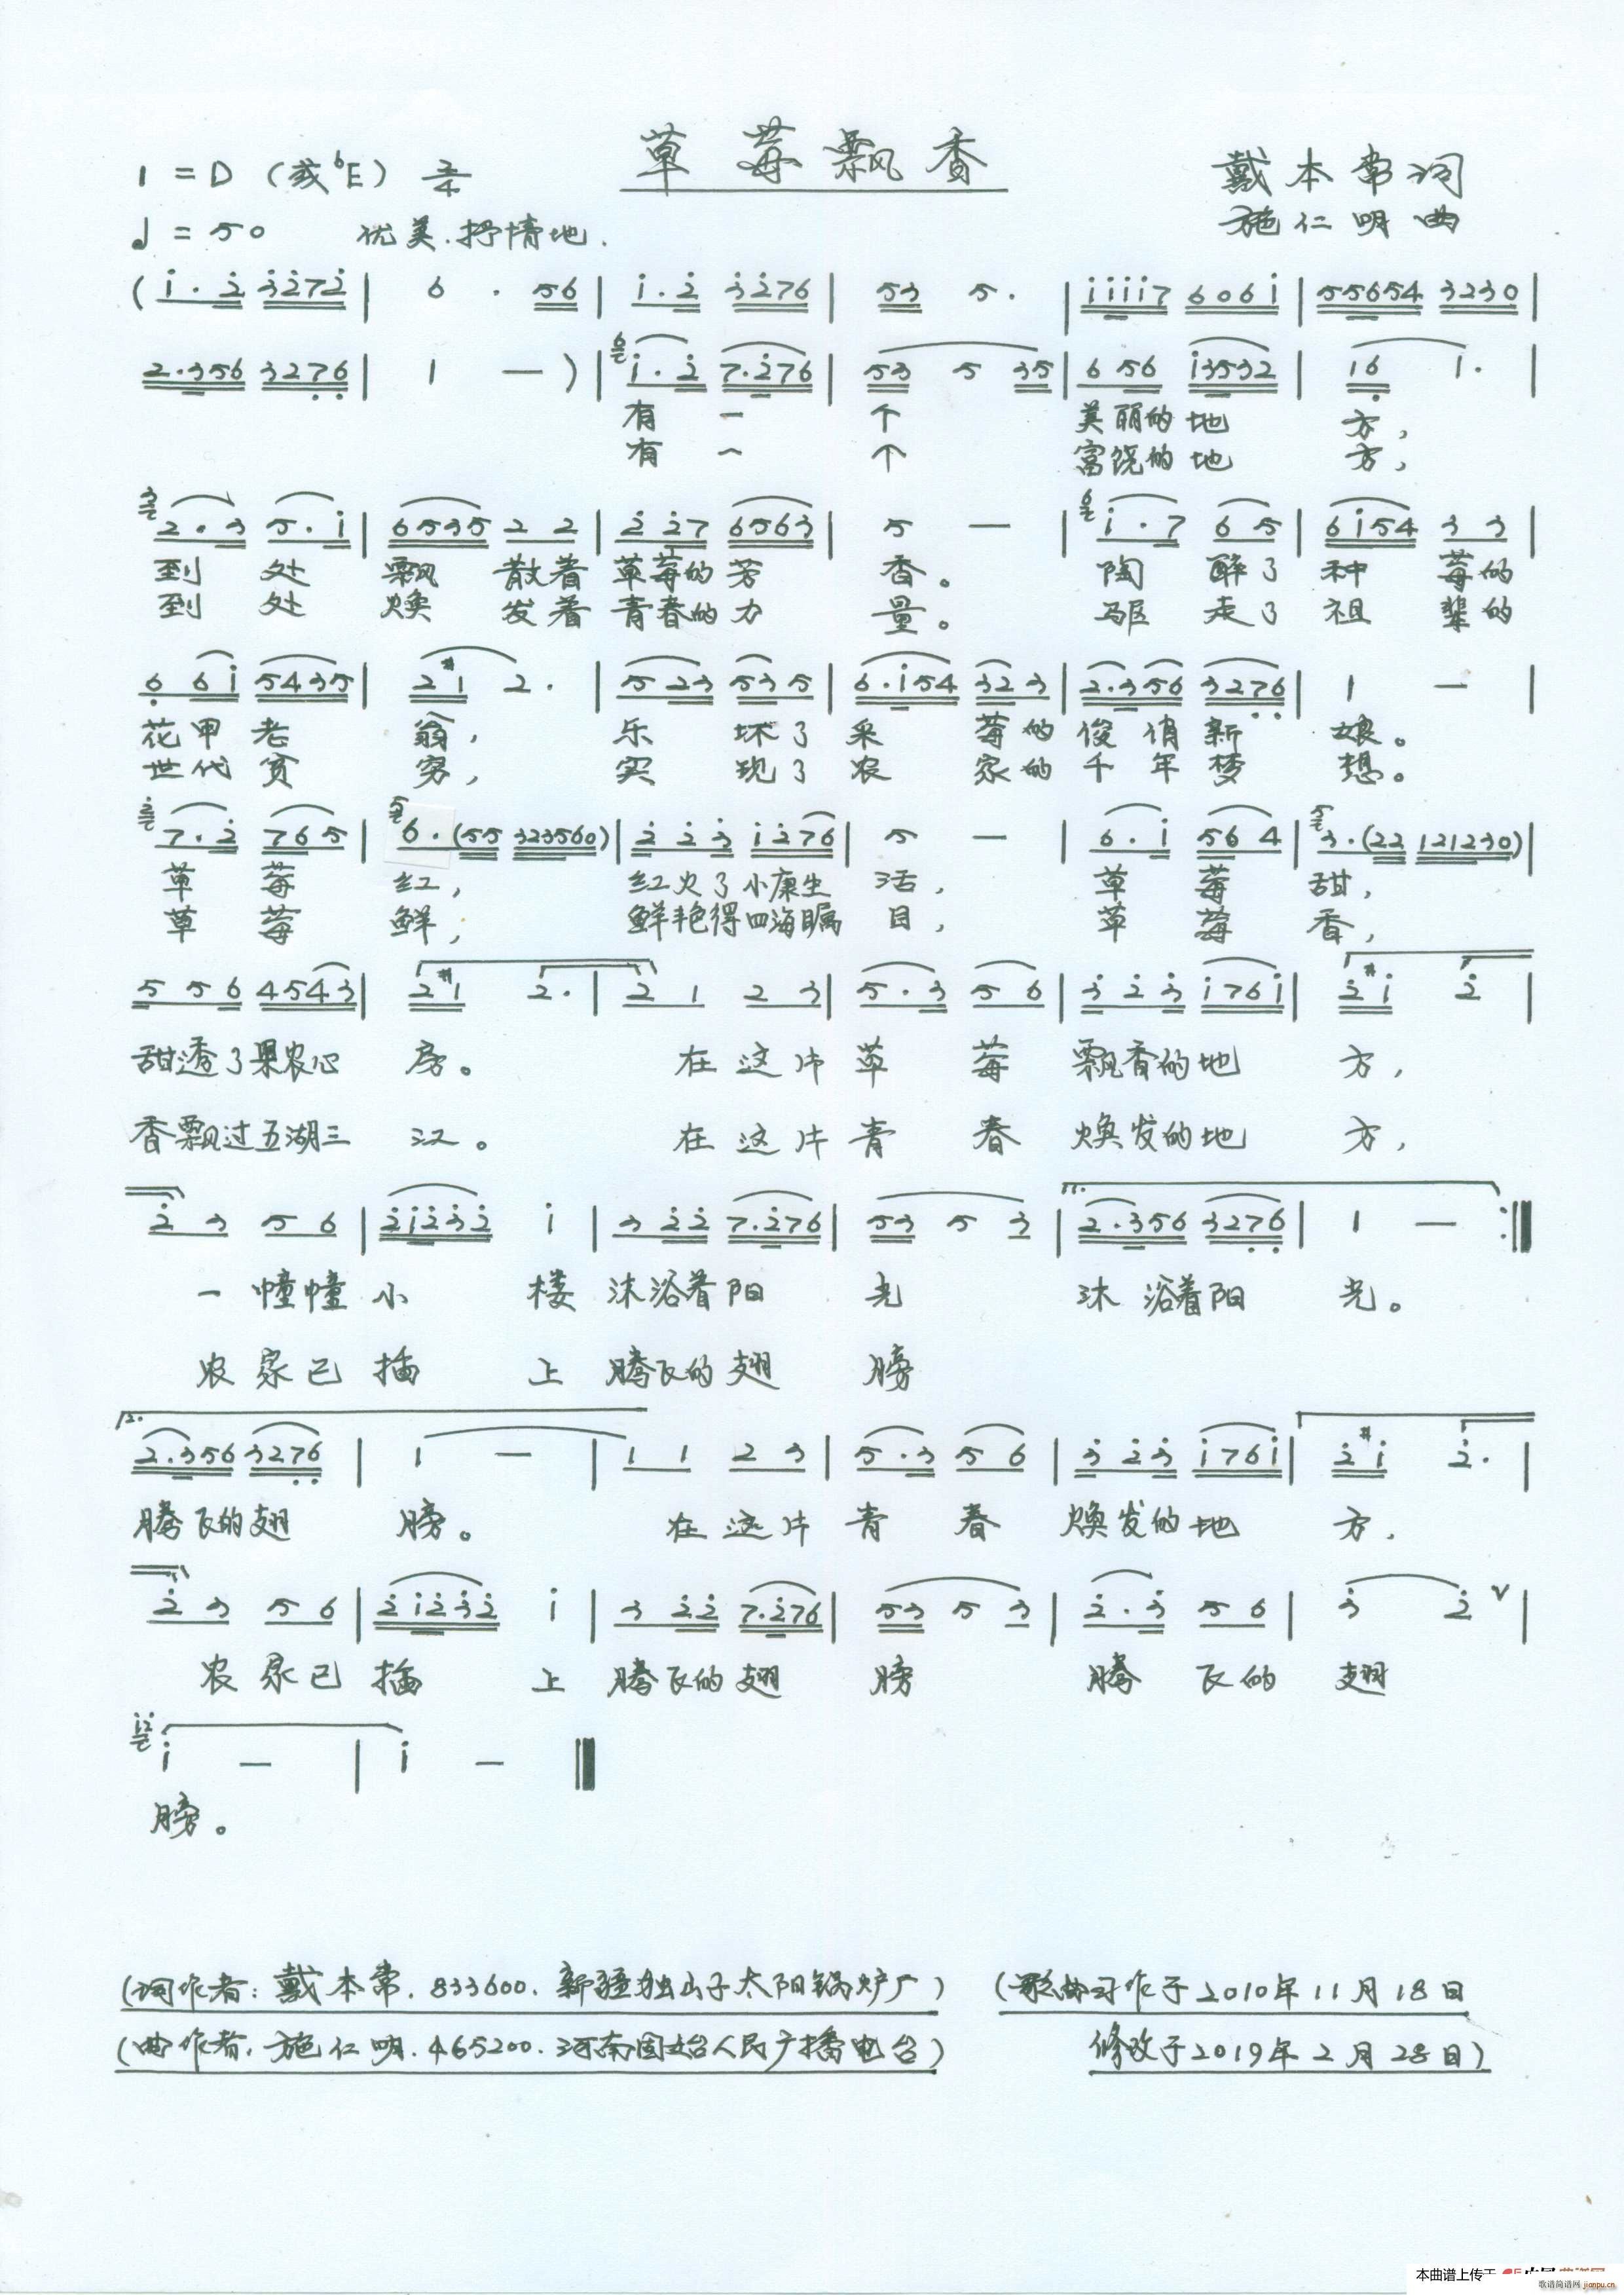 草莓飘香
1=D（或bE）2/4
戴本常词
♩=50 优美.抒情地.
施仁明曲
(i·2 3272| 6 · 56| i·2 3276| 53 5·| iiii7 606i| 55654 3230|
2·356 3276| 1 —)| i·2 7·276| 53 5 35| 6 56 i3532| 16 1·|
有一个美丽的地方，
有一个富饶的地方，
2·3 5·i| 6535 2 2| 2 27 6563| 5 —| i·7 6 5| 6i54 3 3|
到处飘散着草莓的芳香。陶醉了种莓的
到处焕发着青春的力量。驱走了祖辈的
6 6i 5435| 2#1 2·| 5 23 53 5| 6·i54 32 3| 2·356 3276| 1 —|
花甲老翁，乐坏了采莓的俊俏新娘。
世代贫穷，实现了农家的千年梦想。
7·2 76 5| 6·(55 323560)| 2 2 3 i276| 5 —| 6·i 56 4| 3·(22 121230)|
草莓红，红火了小康生活，草莓甜，
草莓鲜，鲜艳得四海瞩目，草莓香，
5 5 6 4543| 2#1 2·| 2 1 2 3| 5·3 5 6| 3 2 3 i76i| 2#i 2|
甜透了果农心房。在这片草莓飘香的地方，
香飘过五湖三江。在这片青春焕发的地方，
2 3 5 6| 2i232 i| 3 22 7·276| 53 5 3| 2·356 3276| 1 — :|
一幢幢小楼沐浴着阳光 沐浴着阳光。
农家已插上腾飞的翅膀
2·356 3276| 1 —| 1 1 2 3| 5·3 5 6| 3 2 3 i76i| 2#i 2·|
腾飞的翅膀。在这片青春焕发的地方，
2 3 5 6| 2i232 i| 3 22 7·276| 53 5 3| 2·3 5 6| 3 2 ∨|
农家已插上腾飞的翅膀 腾飞的翅
i —| i —|
膀。
(词作者：戴本常.833600.新疆独山子太阳锅炉厂)
(歌曲习作于2010年11月18日
(曲作者.施仁明.465200.河南固始人民广播电台)
修改于2019年2月28日)
本曲谱上传于
歌谱简谱网 jianpu.cn